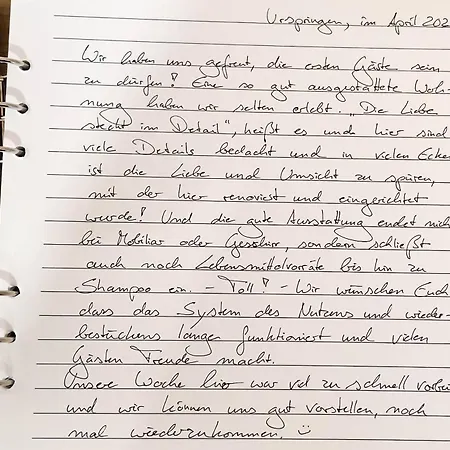 Urspringen, im April 202
Wir haben uns gefreut, die ersten Gäste sein
zu dürfen! Eine so gut ausgestattete Woh-
nung haben wir selten erlebt. „Die Liebe
steckt im Detail", heißt es und hier sind
viele Details bedacht und in vielen Ecken
ist die Liebe und Umsicht zu spüren,
mit der hier renoviert und eingerichtet
wurde! Und die gute Ausstattung endet nich
bei Mobiliar oder Geschirr, sondern schließt
auch noch Lebensmittelvorräte bis hin zu
Shampoo ein. - Toll! - Wir wünschen Euch
dass das System des Nutzens und wieder-
bestückens lange funktioniert und vielen
Gästen Freude macht.
Unsere Woche hier war vel zu schnell vorbei
und wir können uns gut vorstellen, noch
mal wiederzukommen. ☺